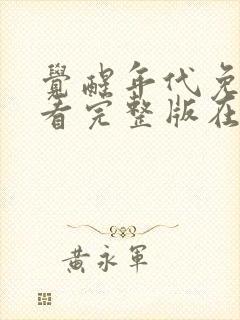 覺醒年代免
看完整版在
黃永軍